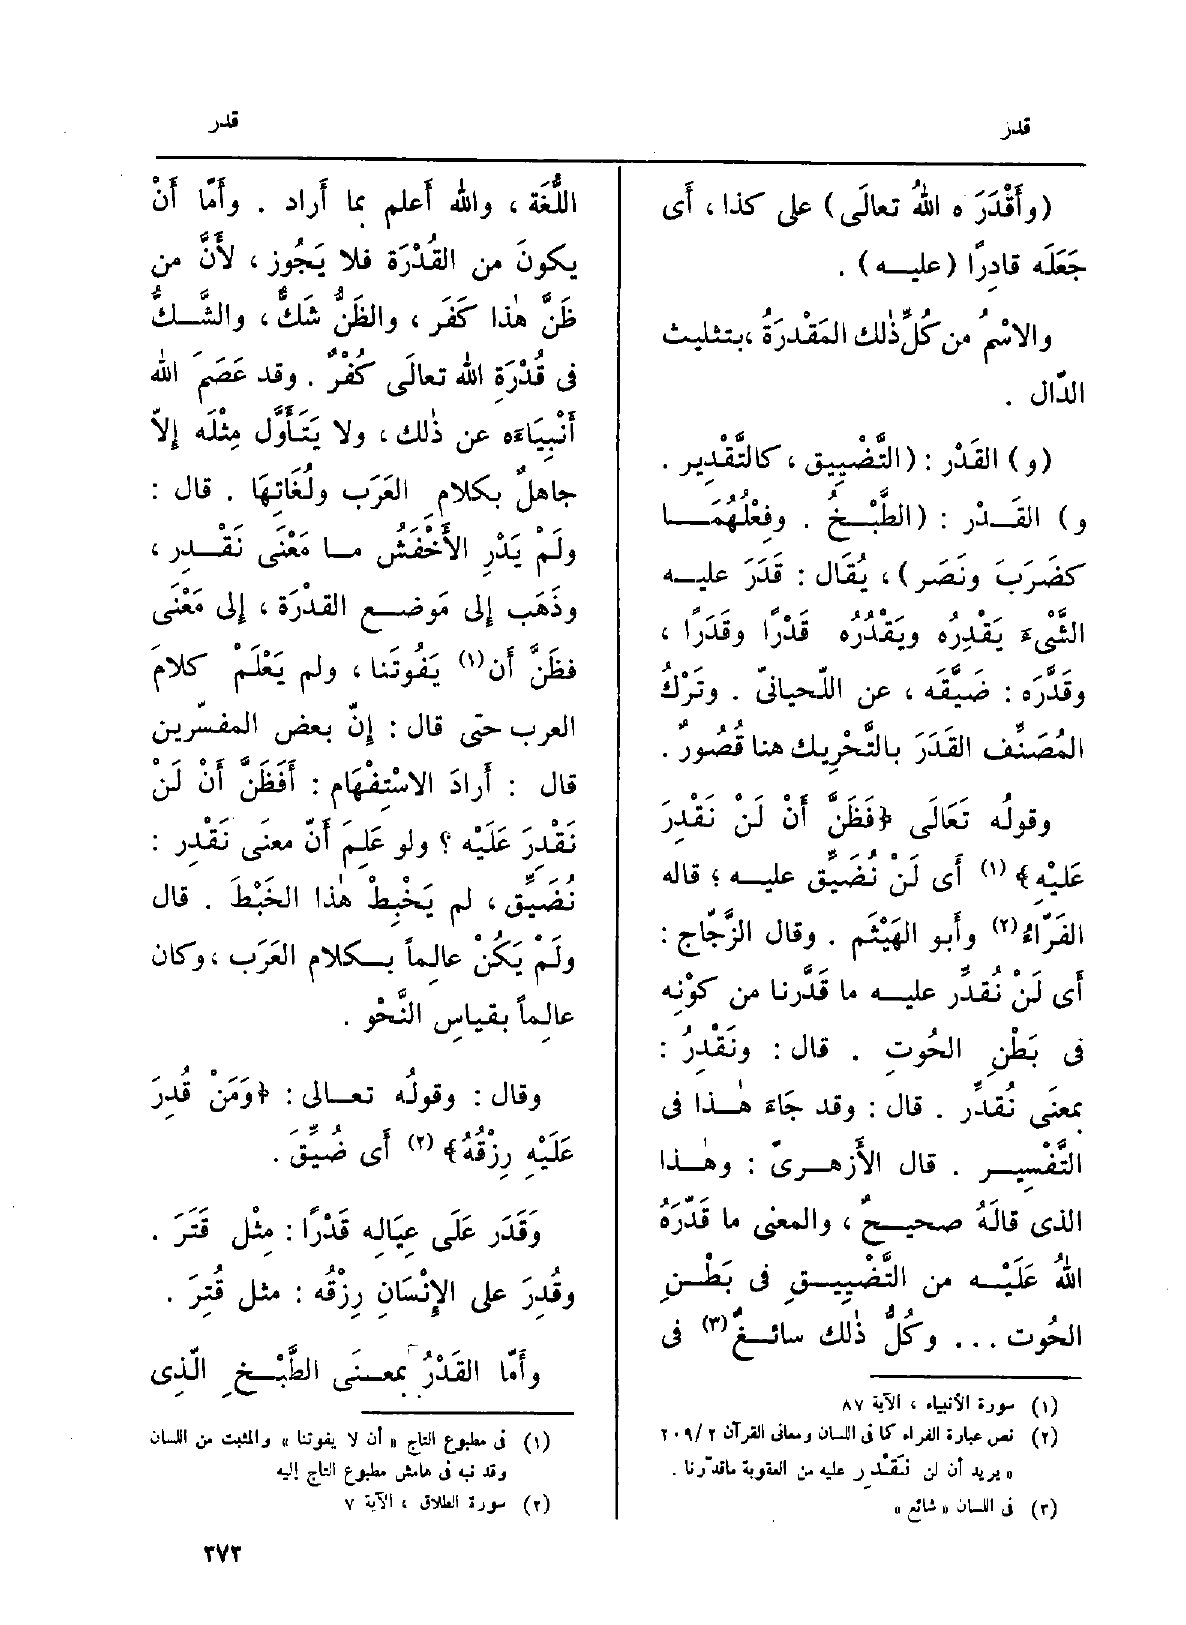 قدر
قدر
(وأَقْدَرَه اللهُ تعالَى) على كذا ، أَى
جَعَلَه قادِرًا (عليــه) .
والاسْمُ من كُلِّ ذٰلك المَقْدرَةُ ، بتثليث
الدّال .
(و) القَدْر : (التَّضْيِيق ، كالتَّقْدِير .
و) القَــدْر : (الطَّبْــخُ . وفِعْلُهُمَــا
كضَرَبَ ونَصَر) ، يُقَال : قَدَرَ عليــه
الشَّىْءَ يَقْدِرُه ويَقْدُرُه قَدْرًا وقَدَرًا ،
وقَدَّرَه : ضَيَّقَه ، عن اللّحيانىّ . وتَرْكُ
المُصَنِّف القَدَرَ بالتَّحْرِيك هنا قُصُورٌ .
وقولُه تَعَالَى ﴿فَظَنَّ أَنْ لَنْ نَقْدِرَ
عَلَيْهِ﴾ (١) أَى لَنْ نُضَيِّق عليــه ؛ قاله
الفَرّاءُ (٢) وأَبو الهَيْثَم . وقال الزَّجّاج :
أَى لَنْ نُقدِّر عليــه ما قَدَّرنا من كَوْنِه
فى بَطْنِ الحُوتِ . قال : ونَقْدِرُ :
بمعنَى نُقدِّر . قال : وقد جَاءَ هٰــذا فى
التَّفْسِيــر . قال الأَزهــرىّ : وهٰــذا
الذى قالَهُ صحيــحٌ ، والمعنى ما قَدَّرَهُ
اللهُ عَلَيْــه من التَّضْيِيــقِ فى بَطْــنِ
الحُوت ... وكُلُّ ذٰلك سائــغٌ (٣) فى
(١) سورة الأنبياء ، الآية ٨٧
(٢) نص عبارة الفراء كما فى اللسان ومعانى القرآن ٢ /٢٠٩
« يريد أن لن نَقْدر عليه من العقوبة ماقدّرنا .
(٣) فى اللسان « شائع »
اللُّغَة ، والله أَعلم بما أَراد . وأَمّا أَنْ
يكونَ من القُدْرَة فلا يَجُوز ، لأَنَّ من
ظَنَّ هٰذا كفَر ، والظَنُّ شَكٌّ ، والشَّــكُّ
فى قُدْرَةِ الله تعالَى كُفْرٌ . وقد عَصَمَ الله
أَنْبِيَاءَه عن ذٰلك ، ولا يَتَأَوَّل مِثْلَه إِلاّ
جاهلٌ بكلامِ العَرَب ولُغَاتِهَا . قال :
ولَمْ يَدْرِ الأَخْفَشُ مــا مَعْنَى نَقْــدِر ،
وذَهَب إلى مَوضــع القدْرَة ، إلى مَعْنَى
فظَنَّ أَن (١) يَفُوتَنا ، ولم يَعْلَمْ كلامَ
العرب حتى قال : إِنّ بعض المفسِّرين
قال : أَرادَ الاسْتِفْهَام : أَفَظَنَّ أَنْ لَنْ
نَقْدِرَ عَلَيْه ؟ ولو عَلِمَ أَنّ معنَى نَقْدِر :
نُضَيِّق ، لم يَخْبِطْ هٰذا الخَبْطَ . قال
ولَمْ يَكُنْ عالِماً بــكلام العَرَب ، وكان
عالِماً بقِياسِ النَّحْوِ .
وقال : وقولُه تعــالى : ﴿وَمَنْ قُدِرَ
عَلَيْهِ رِزْقُهُ﴾ (٢) أَى ضُيِّقَ .
وقَدَر عَلَى عِيَالِه قَدْرًا : مِثْل قَتَرَ .
وقُدِرَ على الإِنْسَانِ رِزْقُه : مثل قُتِرَ .
وأَمّا القَدْرُ بمعــنَى الطَّبْــخِ الّذِى
(١) فى مطبوع التاج « أن لا يفوتنا » والمثبت من اللسان
وقد نبه فى هامش مطبوع التاج إليه
(٢) سورة الطلاق ، الآية ٧
٣٧٣